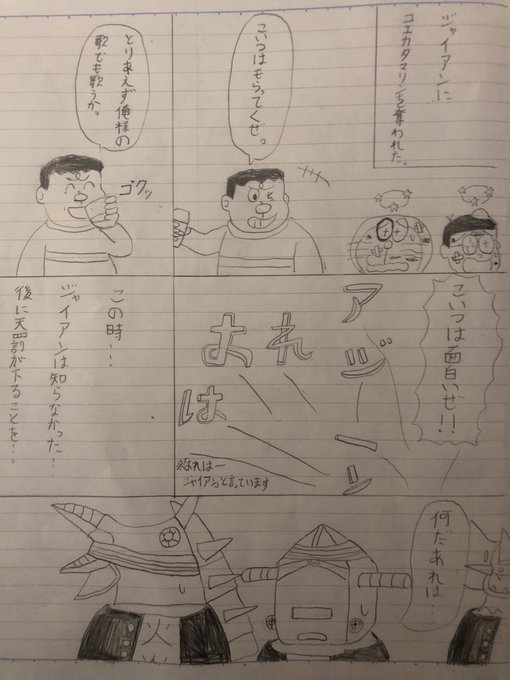 ジャイアンに
コエカタマリンを奪われた。
こいつはもらってくぜっ
とりあえず俺様の
歌でも歌うかっ
ゴクッ
こいつは面白いぜ!!
れ
は
ジャイアンと言っています
この時・・・
ジャイアンは知らなかった!
後に天罰が下ることを・・・
何だあれは・・・